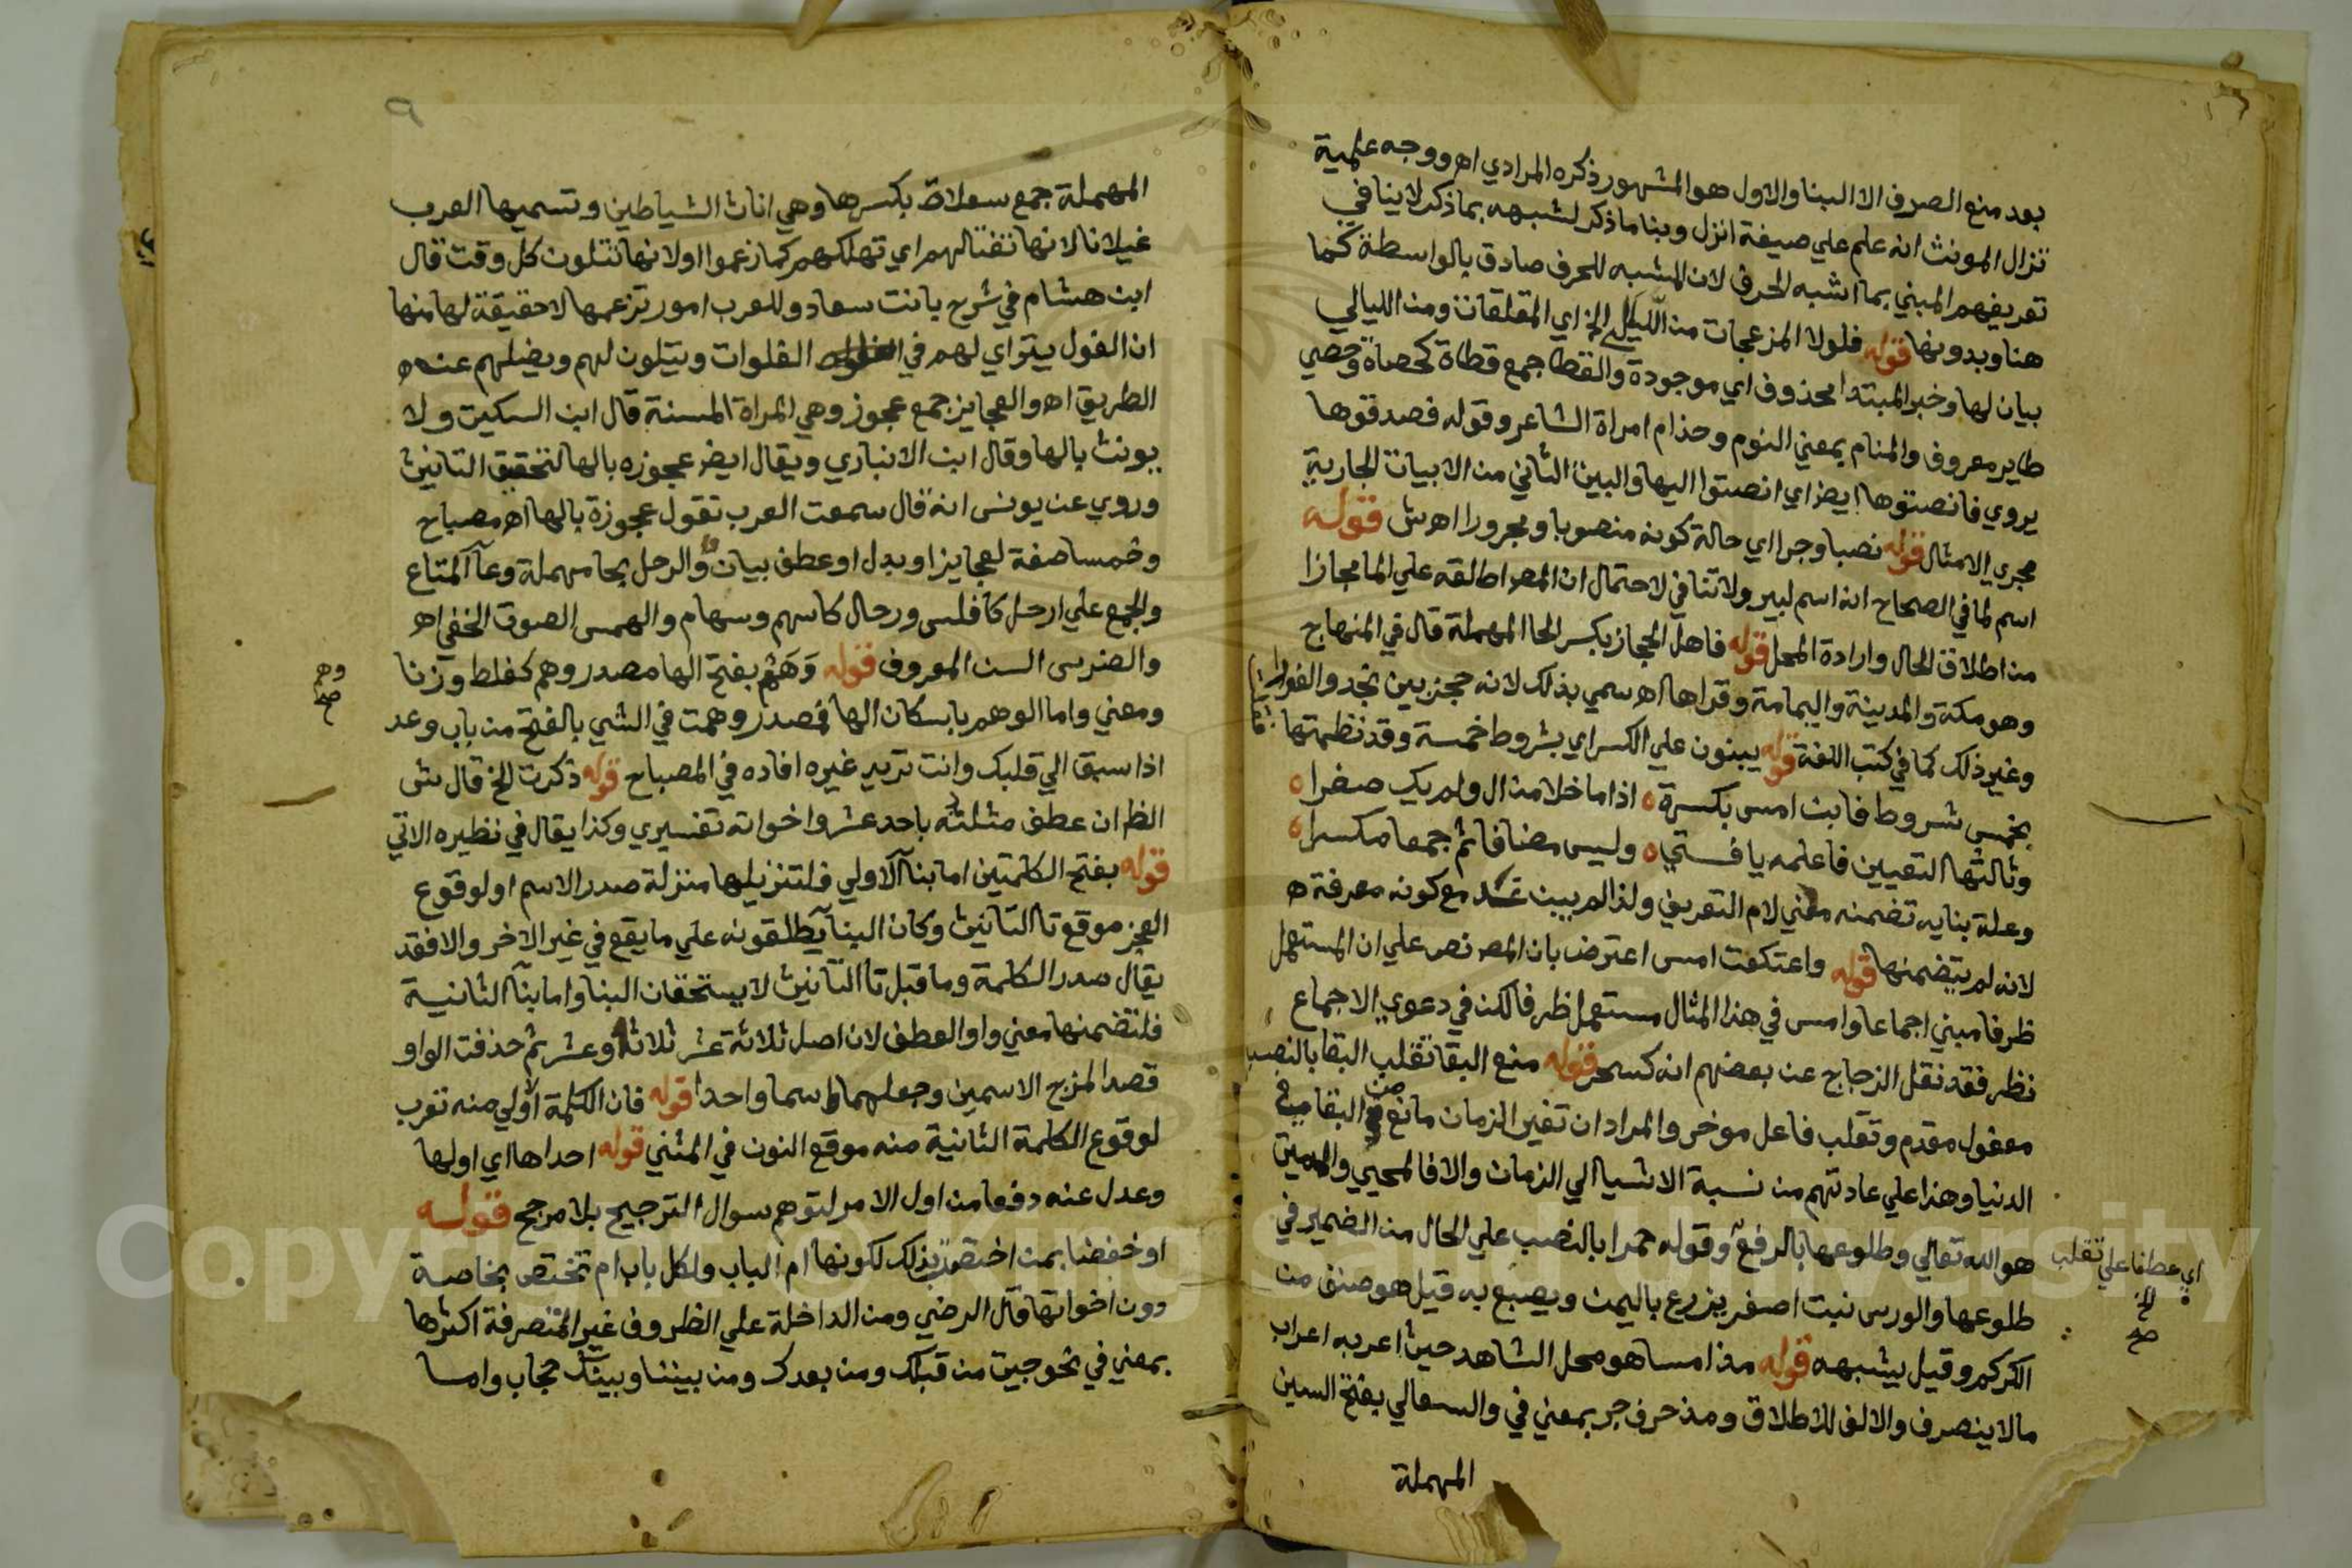 بعد منع الصرف الا البنا والاول هو المشهور ذكره المرادي اه ووجه علمية
تزال المونث انه علم علي صيغة انزل وبنا ما ذكر لشبهه بما ذكر لا ينافي
تعريفهم المبني بما اشبه الحرف لان المشبه للحرف صادق بالواسطة كما
هنا وبدونها قوله فلولا المزعجات من الليالي الخ اي المقلقات ومن الليالي
بيان لها وخبر المبتدا محذوف اي موجودة والقطا جمع قطاة كحصاة وحصي
طاير معروف والمنام بمعني النوم وحذام امراة الشاعر وقوله فصدقوها
يروي فانصتوها ايض اي انصتوا اليها والبيت الثاني من الابيات الجارية
مجري الامثال قوله نصبا وجرا اي حالة كونه منصوبا ومجرورا اه ش قوله
اسم لما في الصحاح انه اسم لبير ولا تنافي لاحتمال ان المص اطلقه علي الما مجازا
من اطلاق الحال وارادة المحل قوله فاهل الحجاز بكسر الحا المهملة قال في المنهاج
وهو مكة والمدينة واليمامة وقراها اه سمي بذلك لانه حجز بين نجد والغور
وغير ذلك كما في كتب اللغة قوله يبنون علي الكسر اي بشروط خمسة وقد نظمتها
بخمس شروط فابن امس بكسرة ه اذا ما خلا من ال ولم يك صغرا ه
وثالثها التعيين فاعلمه يا فتي ه وليس مضافا ثم جمعا مكسرا ه
وعلة بنايه تضمنه معني لام التعريف ولذا لم يبن غد مع كونه معرفة ه
لانه لم يتضمنها قوله واعتكفت امس اعترض بان المص نص علي ان المستعمل
ظرفا مبني اجماعا وامس في هذا المثال مستعمل ظرفا لكن في دعوي الاجماع
نظر فقد نقل الزجاج عن بعضهم انه كسحر قوله منع البقا تقلب البقا بالنصب
مفعول مقدم وتقلب فاعل موخر والمراد ان تغير الزمان مانع من البقا في
الدنيا وهذا علي عادتهم من نسبة الاشيا الي الزمان والا فالمحيي والمميت
هو الله تعالي وطلوعها بالرفع وقوله حمرا بالنصب علي الحال من الضمير في
اي عطفا علي تقلب
الخ
صح
طلوعها والورس نبت اصفر يزرع باليمن ويصبغ به قيل هو صنف من
الكركم وقيل يشبهه قوله مذ امسا هو محل الشاهد حيث اعربه اعراب
ما لا ينصرف والالف للاطلاق ومذ حرف جر بمعني في والسعالي بفتح السين
المهملة
٩
المهملة جمع سعلاة بكسرها وهي اناث الشياطين وتسميها العرب
غيلانا لانها تغتالهم اي تهلكهم كما زعموا او لانها تتلون كل وقت قال
ابن هشام في شرح بانت سعاد وللعرب امور تزعمها لا حقيقة لها منها
ان الغول يتراي لهم في الفلوات ويتلون لهم ويضلهم عن ه
الطريق اه والعجايز جمع عجوز وهي المراة المسنة قال ابن السكيت ولا
يونث بالها وقال ابن الانباري ويقال ايض عجوزه بالها لتحقيق التانيث
وروي عن يونس انه قال سمعت العرب تقول عجوزة بالها اه مصباح
وخمسا صفة لعجايز او بدل او عطف بيان والرحل بحا مهملة وعا المتاع
والجمع علي ارحل كافلس ورحال كاسهم وسهام والهمس الصوت الخفي اه
والضرس السن المعروف قوله وَهَمٌ بفتح الها مصدر وهم كغلط وزنا
وهم
صح
ومعني واما الوهم باسكان الها فمصدر وهمت في الشي بالفتح من باب وعد
اذا سبق الي قلبك وانت تريد غيره افاده في المصباح قوله ذكرت الخ قال ش
الظ ان عطف مثلثه باحد عشر واخواته تفسيري وكذا يقال في نظيره الاتي
قوله بفتح الكلمتين اما بنا الاولي فلتنزيلها منزلة صدر الاسم او لوقوع
العجز موقع تا التانيث وكان البنا يطلقونه علي ما يقع في غير الاخر والا فقد
يقال صدر الكلمة وما قبل تا التانيث لا يستحقان البنا واما بنا الثانية
فلتضمنها معني واو العطف لان اصل ثلاثة عشر ثلاثة وعشر ثم حذفت الواو
قصدا لمزج الاسمين وجعلهما اسما واحدا قوله فان الكلمة الاولي منه تعرب
لوقوع الكلمة الثانية منه موقع النون في المثني قوله احداها اي اولها
وعدل عنه دفعا من اول الامر لتوهم سوال الترجيح بلا مرجح قوله
او خفضا بمن اختصت بذلك لكونها ام الباب ولكل باب ام تختص بخاصة
دون اخواتها قال الرضي ومن الداخلة علي الظروف غير المتصرفة اكثرها
بمعني في نحو جيت من قبلك ومن بعدك ومن بيننا وبينك حجاب واما